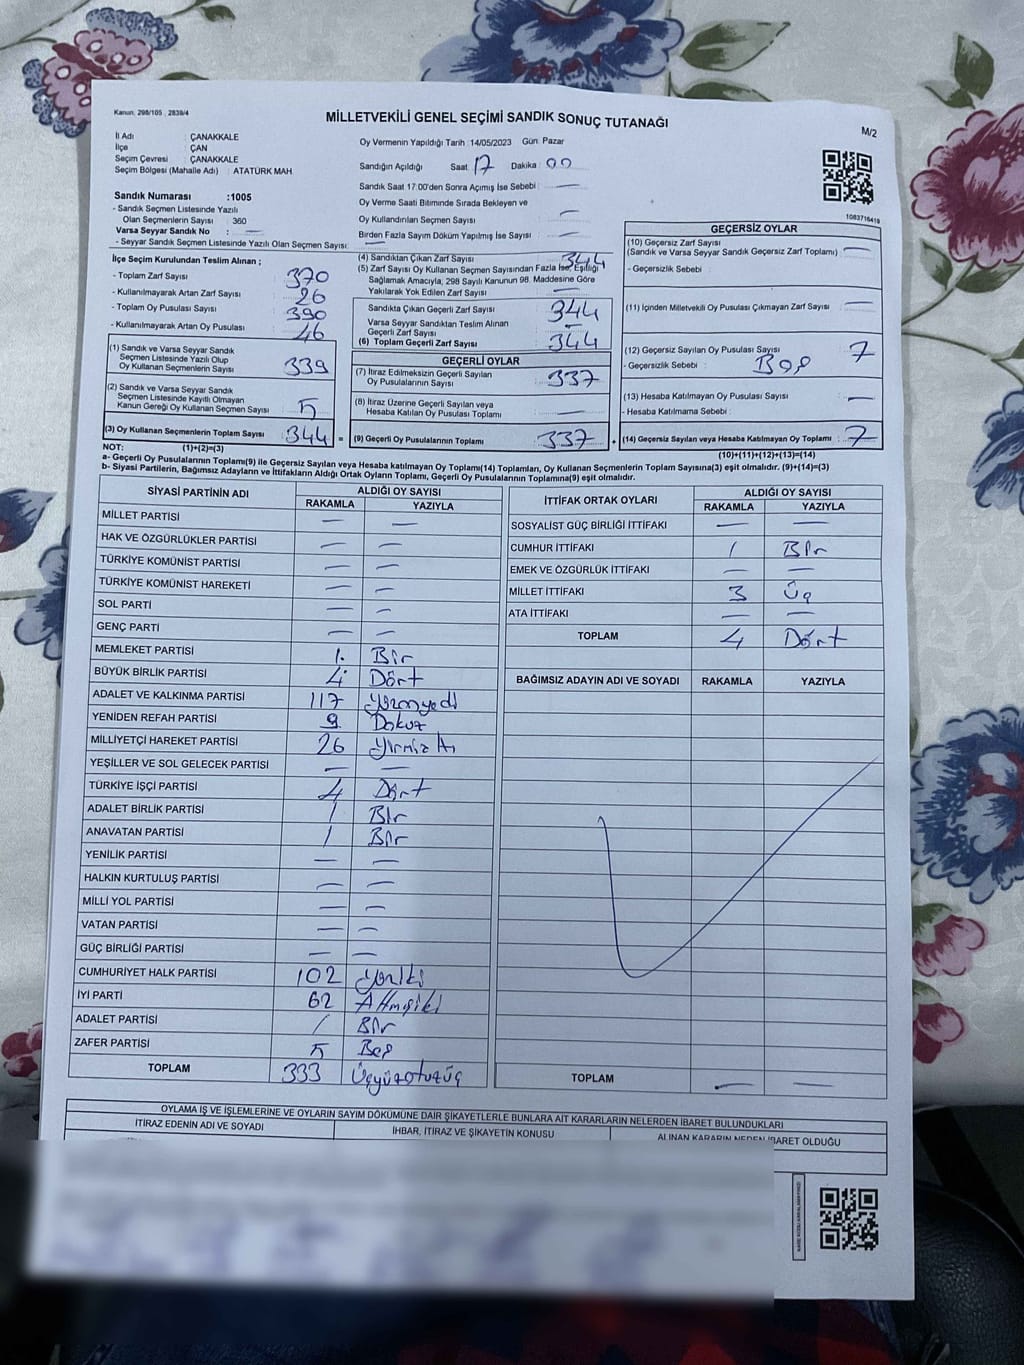 Kanun, 298/105 , 2839/4
MİLLETVEKİLİ GENEL SEÇİMİ SANDIK SONUÇ TUTANAĞI
M/2
İl Adı : ÇANAKKALE
İlçe : ÇAN
Seçim Çevresi : ÇANAKKALE
Seçim Bölgesi (Mahalle Adı) : ATATÜRK MAH.
Sandık Numarası :1005
- Sandık Seçmen Listesinde Yazılı
Olan Seçmenlerin Sayısı : 360
Varsa Seyyar Sandık No : —
- Seyyar Sandık Seçmen Listesinde Yazılı Olan Seçmen Sayısı: —
Oy Vermenin Yapıldığı Tarih :14/05/2023 Gün: Pazar
Sandığın Açıldığı Saat 17 Dakika : 00
Sandık Saat 17:00'den Sonra Açımış İse Sebebi : —
Oy Verme Saati Bitiminde Sırada Bekleyen ve
Oy Kullandırılan Seçmen Sayısı : —
Birden Fazla Sayım Döküm Yapılmış İse Sayısı : —
1083716419
İlçe Seçim Kurulundan Teslim Alınan ;
- Toplam Zarf Sayısı 370
- Kullanılmayarak Artan Zarf Sayısı 26
- Toplam Oy Pusulası Sayısı 390
- Kullanılmayarak Artan Oy Pusulası 46
(1) Sandık ve Varsa Seyyar Sandık
Seçmen Listesinde Yazılı Olup
Oy Kullanan Seçmenlerin Sayısı 339
(2) Sandık ve Varsa Seyyar Sandık
Seçmen Listesinde Kayıtlı Olmayan
Kanun Gereği Oy Kullanan Seçmen Sayısı 5
(3) Oy Kullanan Seçmenlerin Toplam Sayısı 344 =
(4) Sandıktan Çıkan Zarf Sayısı 344
(5) Zarf Sayısı Oy Kullanan Seçmen Sayısından Fazla İse, Eşitliği
Sağlamak Amacıyla, 298 Sayılı Kanunun 98. Maddesine Göre
Yakılarak Yok Edilen Zarf Sayısı —
Sandıkta Çıkan Geçerli Zarf Sayısı 344
Varsa Seyyar Sandıktan Teslim Alınan
Geçerli Zarf Sayısı —
(6) Toplam Geçerli Zarf Sayısı 344
GEÇERLİ OYLAR
(7) İtiraz Edilmeksizin Geçerli Sayılan
Oy Pusulalarının Sayısı 337
(8) İtiraz Üzerine Geçerli Sayılan veya
Hesaba Katılan Oy Pusulası Toplamı —
(9) Geçerli Oy Pusulalarının Toplamı 337
GEÇERSİZ OYLAR
(10) Geçersiz Zarf Sayısı
(Sandık ve Varsa Seyyar Sandık Geçersiz Zarf Toplamı) —
- Geçersizlik Sebebi :
(11) İçinden Milletvekili Oy Pusulası Çıkmayan Zarf Sayısı —
(12) Geçersiz Sayılan Oy Pusulası Sayısı 7
- Geçersizlik Sebebi : Boş
(13) Hesaba Katılmayan Oy Pusulası Sayısı —
- Hesaba Katılmama Sebebi :
(14) Geçersiz Sayılan veya Hesaba Katılmayan Oy Toplamı 7
NOT: (1)+(2)=(3)
(10)+(11)+(12)+(13)=(14)
a- Geçerli Oy Pusulalarının Toplamı(9) ile Geçersiz Sayılan veya Hesaba katılmayan Oy Toplamı(14) Toplamları, Oy Kullanan Seçmenlerin Toplam Sayısına(3) eşit olmalıdır. (9)+(14)=(3)
b- Siyasi Partilerin, Bağımsız Adayların ve İttifakların Aldığı Ortak Oyların Toplamı, Geçerli Oy Pusulalarının Toplamına(9) eşit olmalıdır.
SİYASİ PARTİNİN ADI ALDIĞI OY SAYISI
RAKAMLA YAZIYLA
MİLLET PARTİSİ — —
HAK VE ÖZGÜRLÜKLER PARTİSİ — —
TÜRKİYE KOMÜNİST PARTİSİ — —
TÜRKİYE KOMÜNİST HAREKETİ — —
SOL PARTİ — —
GENÇ PARTİ — —
MEMLEKET PARTİSİ 1. Bir
BÜYÜK BİRLİK PARTİSİ 4 Dört
ADALET VE KALKINMA PARTİSİ 117 Yüzonyedi
YENİDEN REFAH PARTİSİ 9 Dokuz
MİLLİYETÇİ HAREKET PARTİSİ 26 Yirmialtı
YEŞİLLER VE SOL GELECEK PARTİSİ — —
TÜRKİYE İŞÇİ PARTİSİ 4 Dört
ADALET BİRLİK PARTİSİ 1 Bir
ANAVATAN PARTİSİ 1 Bir
YENİLİK PARTİSİ — —
HALKIN KURTULUŞ PARTİSİ — —
MİLLİ YOL PARTİSİ — —
VATAN PARTİSİ — —
GÜÇ BİRLİĞİ PARTİSİ — —
CUMHURİYET HALK PARTİSİ 102 Yüziki
İYİ PARTİ 62 Altmışiki
ADALET PARTİSİ 1 Bir
ZAFER PARTİSİ 5 Beş
TOPLAM 333 Üçyüzotuzüç
İTTİFAK ORTAK OYLARI ALDIĞI OY SAYISI
RAKAMLA YAZIYLA
SOSYALİST GÜÇ BİRLİĞİ İTTİFAKI — —
CUMHUR İTTİFAKI 1 Bir
EMEK VE ÖZGÜRLÜK İTTİFAKI — —
MİLLET İTTİFAKI 3 Üç
ATA İTTİFAKI — —
TOPLAM 4 Dört
BAĞIMSIZ ADAYIN ADI VE SOYADI RAKAMLA YAZIYLA
TOPLAM — —
OYLAMA İŞ VE İŞLEMLERİNE VE OYLARIN SAYIM DÖKÜMÜNE DAİR ŞİKAYETLERLE BUNLARA AİT KARARLARIN NELERDEN İBARET BULUNDUKLARI
İTİRAZ EDENİN ADI VE SOYADI İHBAR, İTİRAZ VE ŞİKAYETİN KONUSU ALINAN KARARIN NEDEN İBARET OLDUĞU